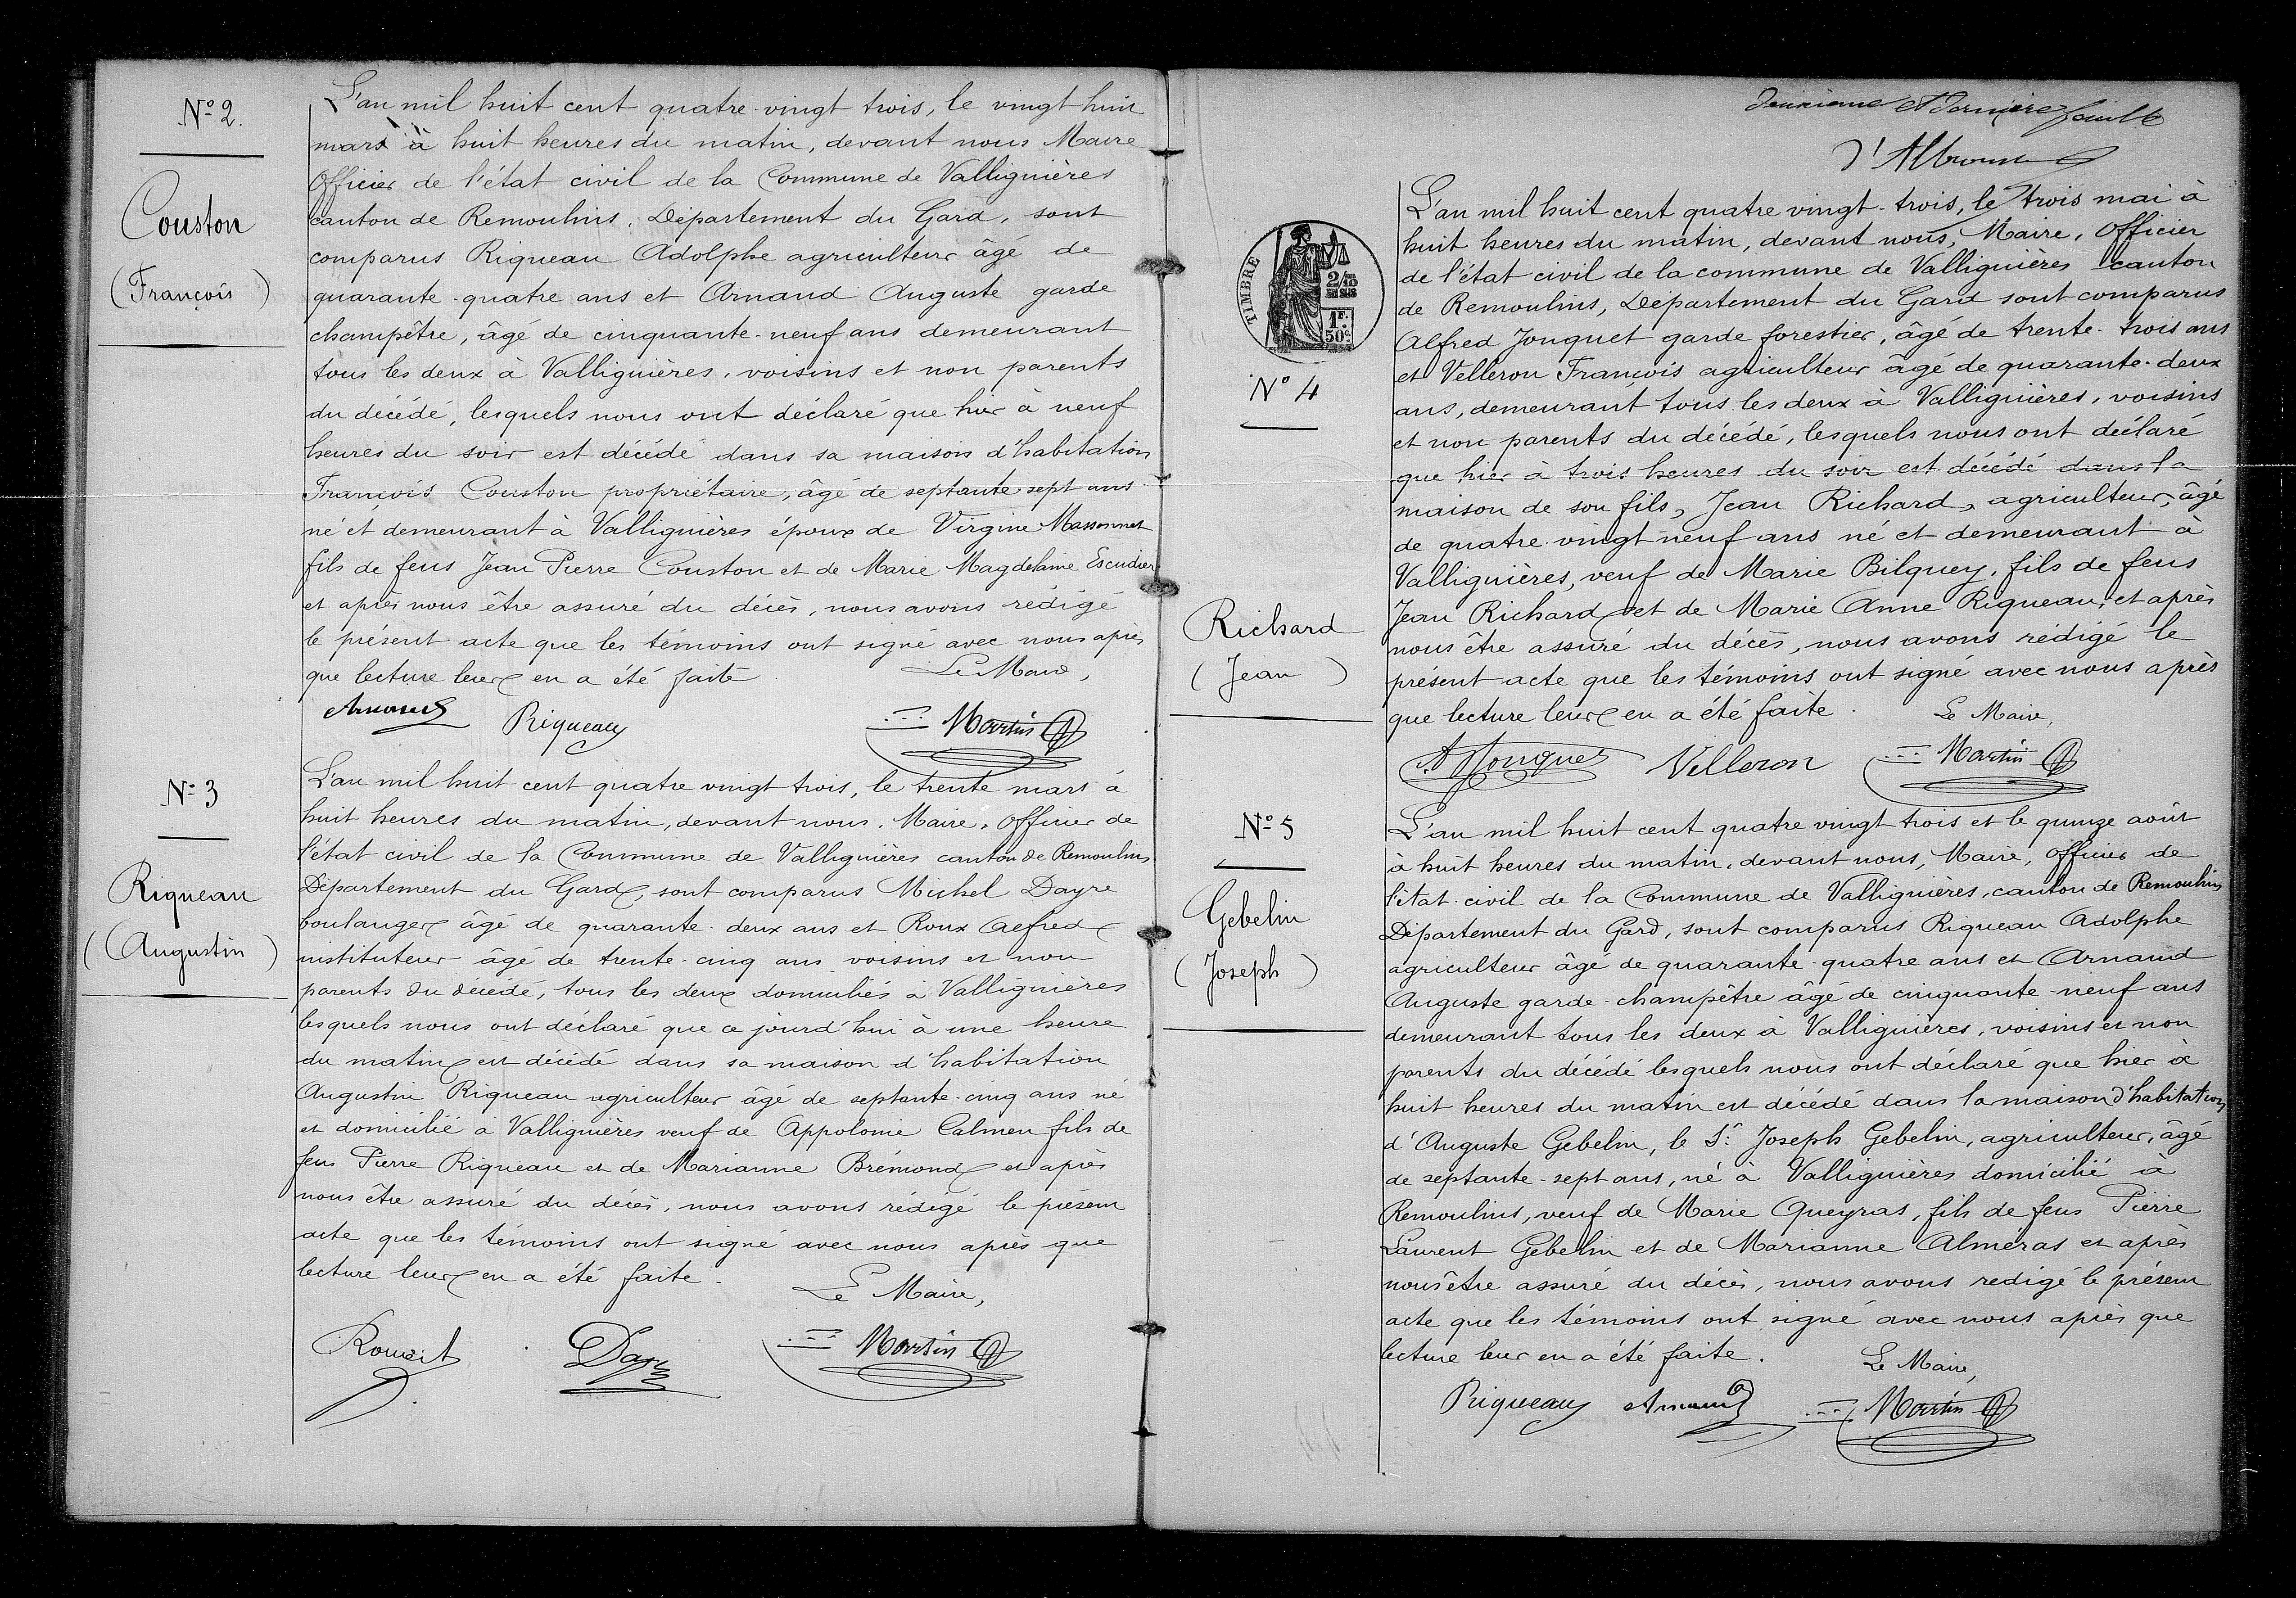 N° 2.
Couston
(François)
L'an mil huit cent quatre-vingt trois, le vingt huit
mars à huit heures du matin, devant nous Maire
Officier de l'état civil de la Commune de Valliguières
canton de Remoulins, Département du Gard, sont
comparus Riqueau Adolphe agriculteur âgé de
quarante-quatre ans et Arnaud Auguste garde
champêtre, âgé de cinquante-neuf ans demeurant
tous les deux à Valliguières, voisins et non parents
du décédé, lesquels nous ont déclaré que hier à neuf
heures du soir est décédé dans sa maison d'habitation
François Couston propriétaire, âgé de septante sept ans
né et demeurant à Valliguières époux de Virgine Massonnet
fils de feus Jean Pierre Couston et de Marie Magdelaine Escudier
et après nous être assuré du décès, nous avons rédigé
le présent acte que les témoins ont signé avec nous après
que lecture leur en a été faite.
Le Maire,
Arnaud Riqueau Martin
N° 3
Riqueau
(Augustin)
L'an mil huit cent quatre vingt trois, le trente mars à
huit heures du matin, devant nous, Maire, Officier de
l'état civil de la Commune de Valliguières canton de Remoulins
Département du Gard, sont comparus Michel Dayre
boulanger âgé de quarante-deux ans et Roux Alfred
instituteur âgé de trente-cinq ans voisins et non
parents du décédé, tous les deux domiciliés à Valliguières
lesquels nous ont déclaré que ce jourd'hui à une heure
du matin est décédé dans sa maison d'habitation
Augustin Riqueau agriculteur âgé de septante-cinq ans né
et domicilié à Valliguières veuf de Appolonie Calmen fils de
feus Pierre Riqueau et de Marianne Brémond et après
nous être assuré du décès, nous avons rédigé le présent
acte que les témoins ont signé avec nous après que
lecture leur en a été faite.
Le Maire,
Martin
deuxième et dernière feuille
TIMBRE
2/10
EN SUS
1F.
50c.
N° 4
Richard
(Jean)
L'an mil huit cent quatre vingt-trois, le trois mai à
huit heures du matin, devant nous, Maire, Officier
de l'état civil de la commune de Valliguières canton
de Remoulins, Département du Gard sont comparus
Alfred Jonquet garde forestier, âgé de trente-trois ans
et Velleron François agriculteur âgé de quarante-deux
ans, demeurant tous les deux à Valliguières, voisins
et non parents du décédé, lesquels nous ont déclaré
que hier à trois heures du soir est décédé dans la
maison de son fils, Jean Richard, agriculteur, âgé
de quatre-vingt neuf ans né et demeurant à
Valliguières, veuf de Marie Bilquey, fils de feus
Jean Richard et de Marie Anne Riqueau, et après
nous être assuré du décès, nous avons rédigé le
présent acte que les témoins ont signé avec nous après
que lecture leur en a été faite.
Le Maire,
A Jonquet Velleron Martin
N° 5
Gebelin
(Joseph)
L'an mil huit cent quatre vingt trois et le quinze août
à huit heures du matin, devant nous, Maire, Officier de
l'état civil de la Commune de Valliguières, canton de Remoulins
Département du Gard, sont comparus Riqueau Adolphe
agriculteur âgé de quarante-quatre ans et Arnaud
Auguste garde-champêtre âgé de cinquante-neuf ans
demeurant tous les deux à Valliguières, voisins et non
parents du décédé lesquels nous ont déclaré que hier à
huit heures du matin est décédé dans la maison d'habitation
d'Auguste Gebelin, le Sr. Joseph Gebelin, agriculteur, âgé
de septante-sept ans, né à Valliguières domicilié à
Remoulins, veuf de Marie Queyras, fils de feus Pierre
Laurent Gebelin et de Marianne Alméras et après
nous être assuré du décès, nous avons rédigé le présent
acte que les témoins ont signé avec nous après que
lecture leur en a été faite.
Le Maire,
Riqueau Arnaud Martin